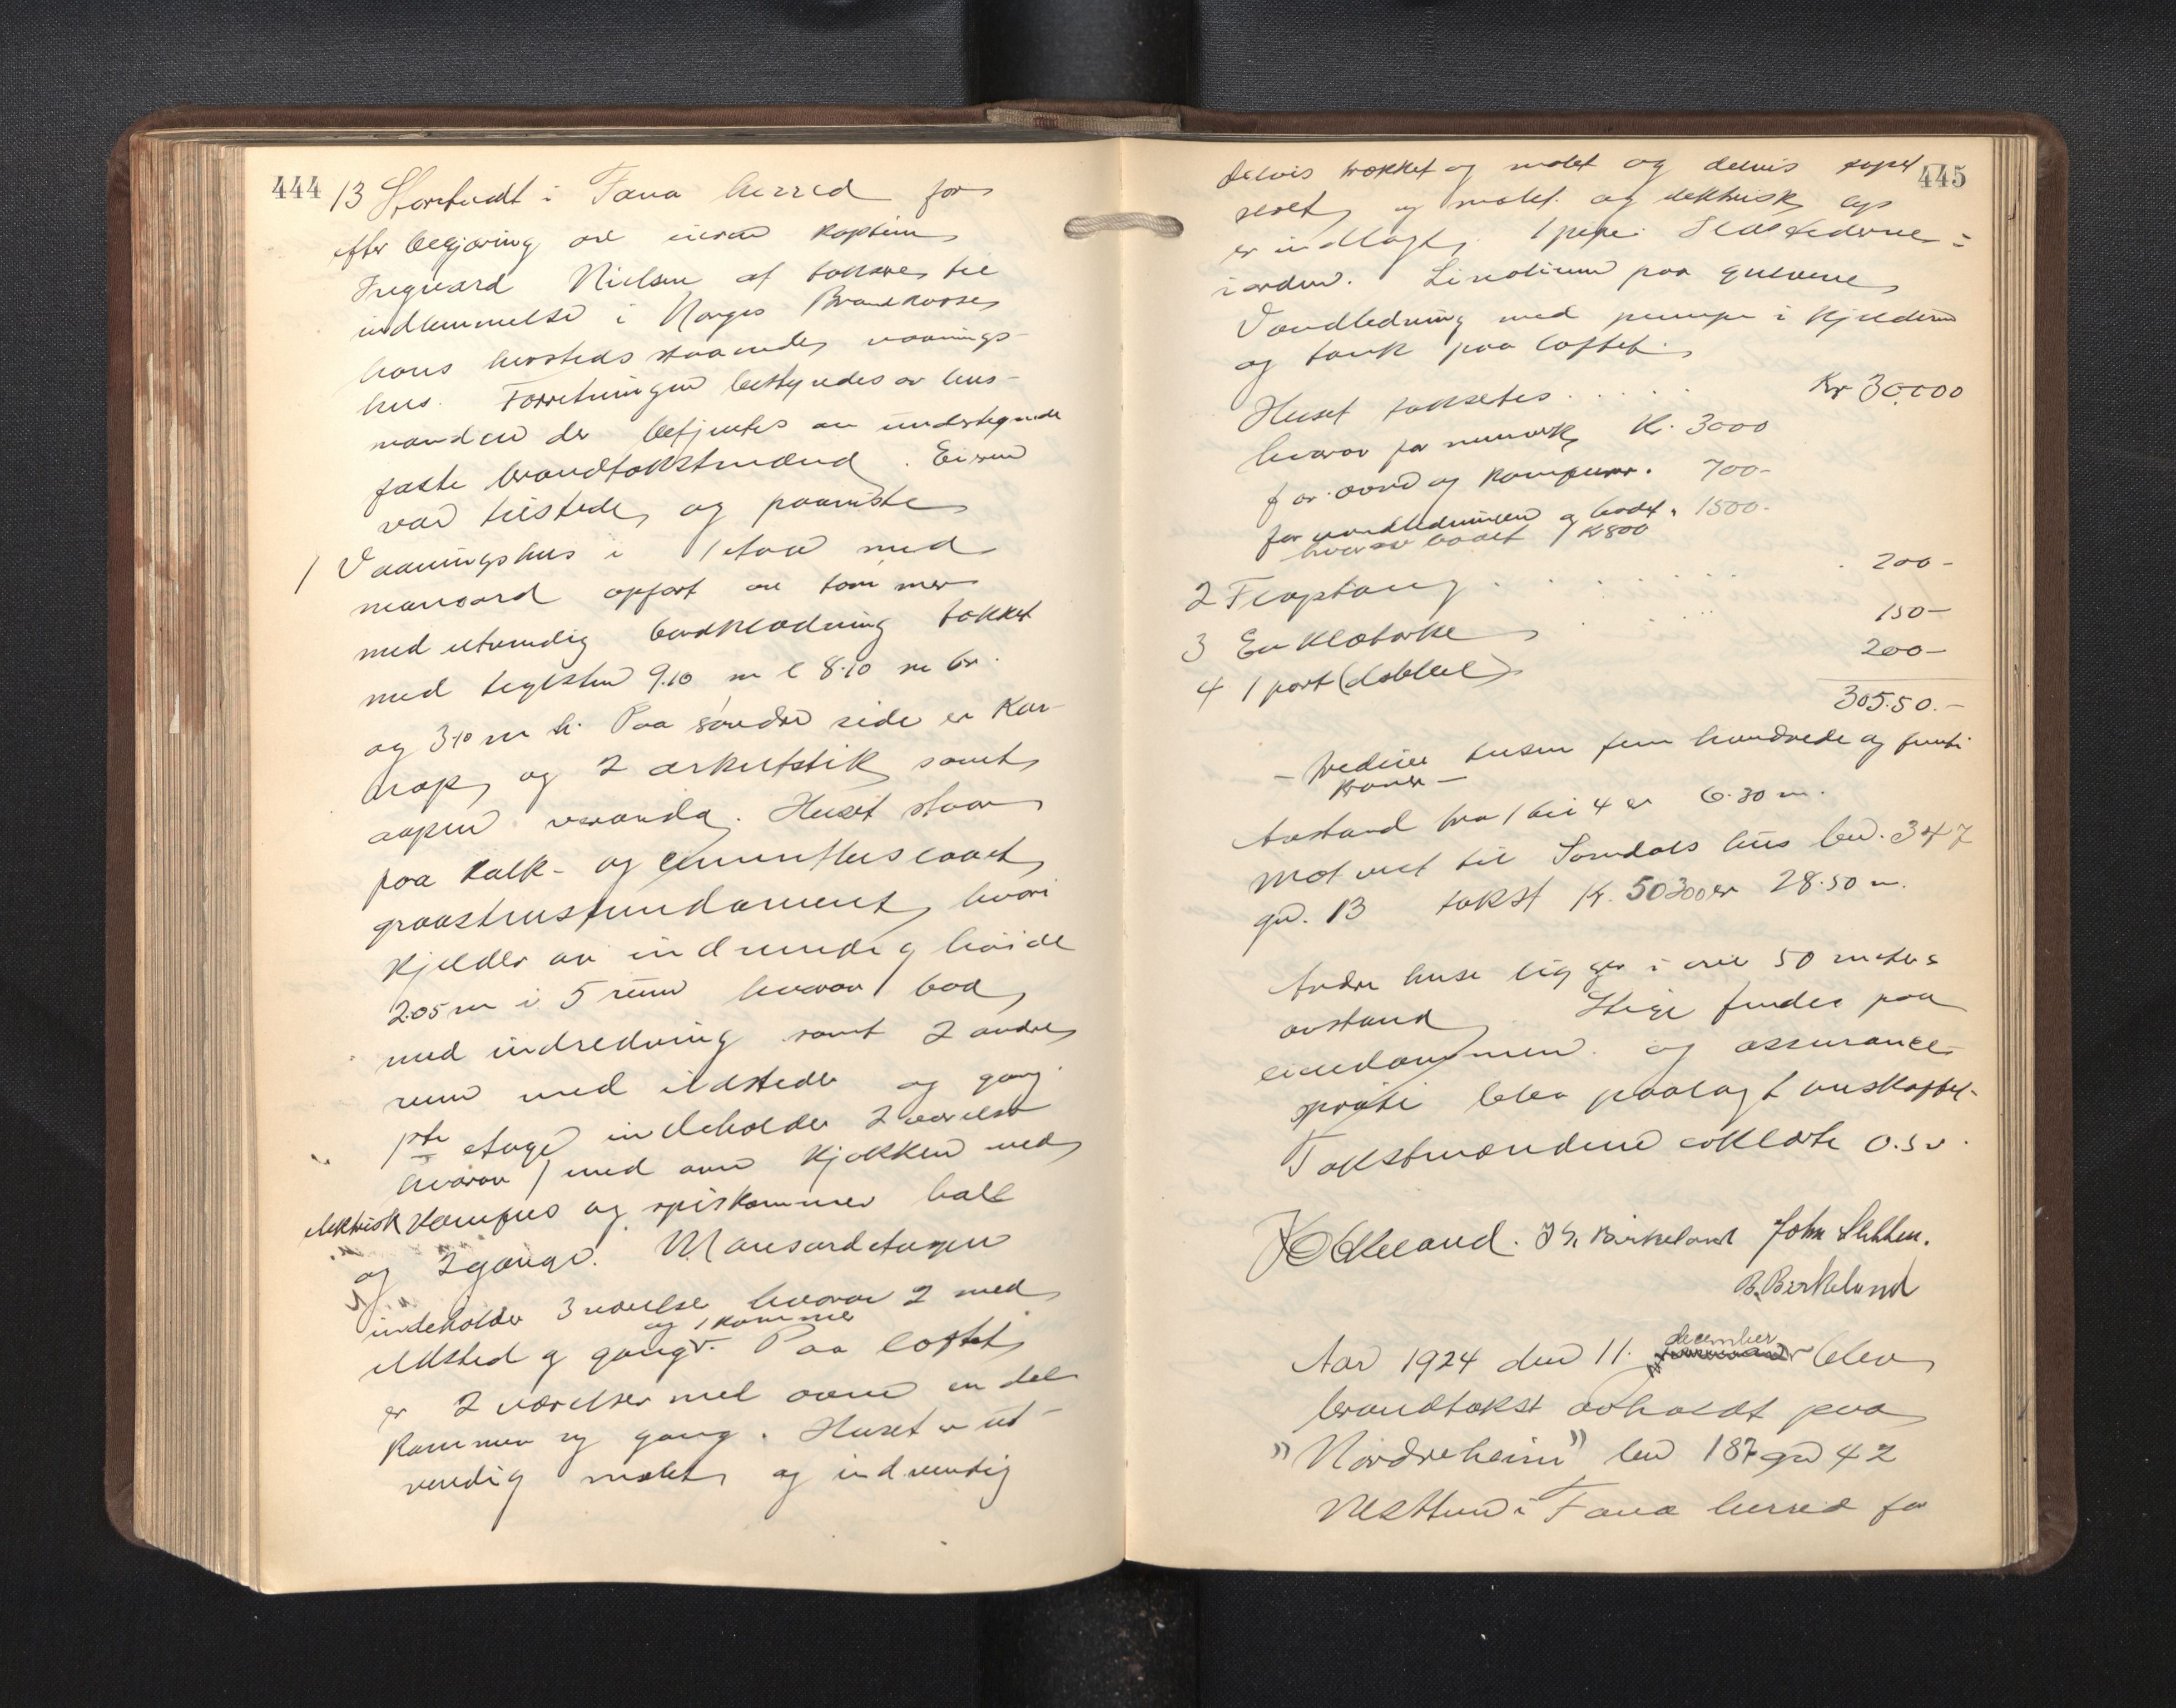 444
13 Storetvedt i Fana herred for
efter begjæring av eieren kaptein
Ingvard Nielsen at taksere til
indlemmelse i Norges Brandkasse
hans hersteds staaende vaanings-
hus. Forretningen bestyredes av lens-
manden der betjentes av undertegnede
faste brandtakstmænd. Eieren
var tilstede og paaviste
1 Vaaningshus i 1 etage med
mansard opført av tømmer
med utvendig bordklædning tækket
med teglsten 9.10 m l 8.10 m br.
og 3.10 m h. Paa søndre side er Kar-
nap og 2 arkutstik samt
aapen veranda. Huset staar
paa kalk- og cementpusset
graastensfundament hvori
kjelder av indvendig høide
2.05 m i 5 rum hvorav 1 bad
med indredning samt 2 andre
rum med ildsteder og gang.
1ste etage indeholder 2 værelser
hvorav 1 med ovn kjøkken med
elektrisk komfur og spiskammer hall
og 2 gange. Mansardetagen
indeholder 3 værelser hvorav 2 med
og 1 kammer
ildsted og gang. Paa loftet
er 2 værelser med ovne en del
kammer og gang. Huset er ut-
vendig malet og indvendig
445
delvis trækket og malet og delvis tapet
seret og malet. og elektrisk lys
er indlagt. 1 pipe. Ildstederne =
i orden. Linolium paa gulvene
Vandledning med pumpe i kjelderen
og tank paa loftet.
Huset takseres . . . . . Kr 30.000
hvorav for murverk Kr. 3000
for ovne og komfurer. 700-
for vandledningen og badet " 1500-
hvorav badet / Kr 800
2 Flagstang . . . . . . . 200-
3 En Klotørke . . . 150-
4 1 port (dobbel) 200-
305.50.-
- tredive tusen fem hundrede og femti
kroner -
Avstand fra 1 til 4 er 6.30 m.
Mot vest til Somdals hus bn. 347
gn. 13 takst Kr. 50300 er 28.50 m.
Andre huse ligger i over 50 meters
avstand. Stige findes paa
eiendommen og assurance-
sprøite blev paalagt anskaffet.
Takstmændene erklærte o.s.v.
J S. Birkeland John Slethen.
B. Birkelund
december
Aar 1924 den 11. blev
brandtakst avholdt paa
"Nordreheim" bn 187 gn 42
Nesttun i Fana herred for